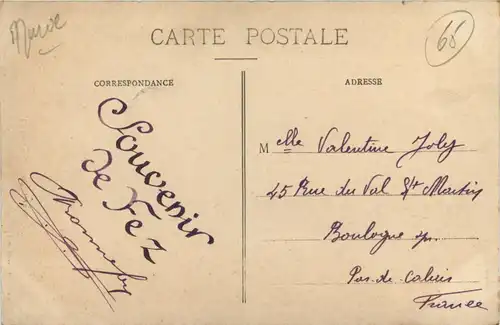 Maroc
CARTE POSTALE
68
CORRESPONDANCE
ADRESSE
Souvenir
de Fez
Melle Valentine Joly
45 Rue du Val St Martin
Boulogne s/m.
Pas-de-Calais
France